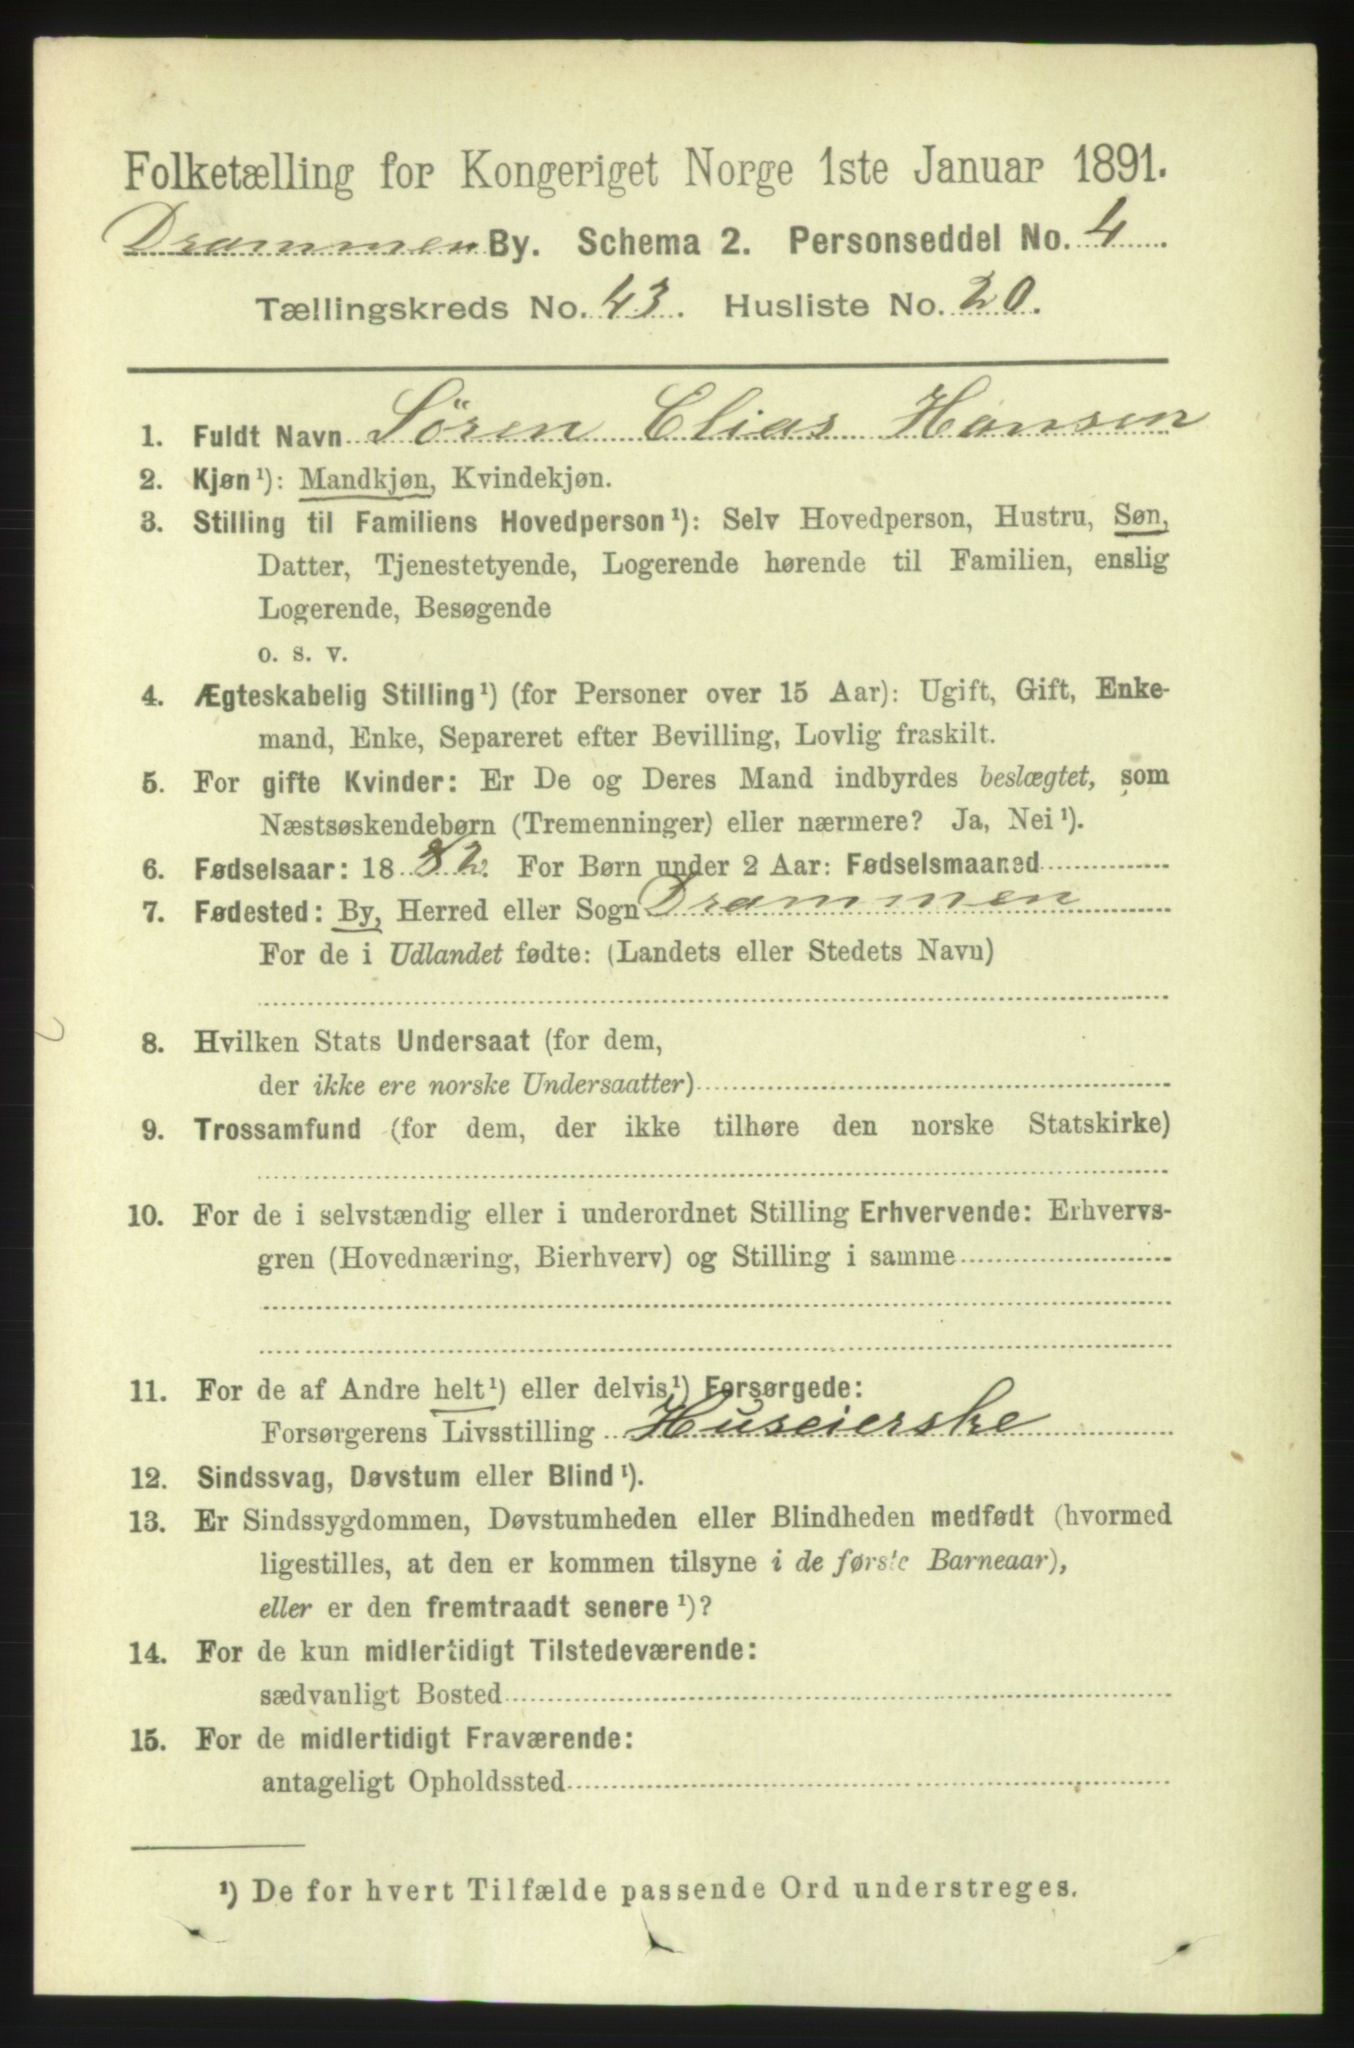 Folketælling for Kongeriget Norge 1ste Januar 1891.
Drammen By. Schema 2. Personseddel No. 4.
Tællingskreds No. 43. Husliste No. 20.
1. Fuldt Navn Søren Elias Hansen
2. Kjøn¹): Mandkjøn, Kvindekjøn.
3. Stilling til Familiens Hovedperson¹): Selv Hovedperson, Hustru, Søn,
Datter, Tjenestetyende, Logerende hørende til Familien, enslig
Logerende, Besøgende
o. s. v.
4. Ægteskabelig Stilling¹) (for Personer over 15 Aar): Ugift, Gift, Enke-
mand, Enke, Separeret efter Bevilling, Lovlig fraskilt.
5. For gifte Kvinder: Er De og Deres Mand indbyrdes beslægtet, som
Næstsøskendebørn (Tremenninger) eller nærmere? Ja, Nei¹).
6. Fødselsaar: 1882. For Børn under 2 Aar: Fødselsmaaned
7. Fødested: By, Herred eller Sogn Drammen
For de i Udlandet fødte: (Landets eller Stedets Navn)
8. Hvilken Stats Undersaat (for dem,
der ikke ere norske Undersaatter)
9. Trossamfund (for dem, der ikke tilhøre den norske Statskirke)
10. For de i selvstændig eller i underordnet Stilling Erhvervende: Erhvervs-
gren (Hovednæring, Bierhverv) og Stilling i samme
11. For de af Andre helt¹) eller delvis¹) Forsørgede:
Forsørgerens Livsstilling Huseierske
12. Sindssvag, Døvstum eller Blind¹).
13. Er Sindssygdommen, Døvstumheden eller Blindheden medfødt (hvormed
ligestilles, at den er kommen tilsyne i de første Barneaar),
eller er den fremtraadt senere¹)?
14. For de kun midlertidigt Tilstedeværende:
sædvanligt Bosted
15. For de midlertidigt Fraværende:
antageligt Opholdssted
¹) De for hvert Tilfælde passende Ord understreges.